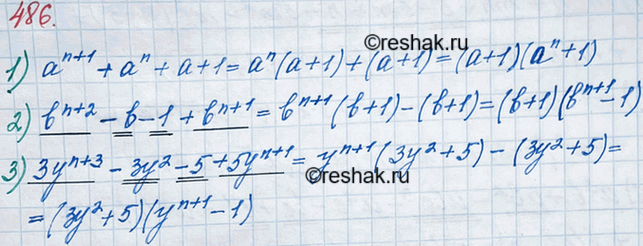 486.
©reshak.ru
1) aⁿ⁺¹ + aⁿ + a + 1 = aⁿ(a+1) + (a+1) = (a+1)(aⁿ+1)
2) bⁿ⁺² - b - 1 + bⁿ⁺¹ = bⁿ⁺¹(b+1) - (b+1) = (b+1)(bⁿ⁺¹ - 1)
3) 3yⁿ⁺³ - 3y² - 5 + 5yⁿ⁺¹ = yⁿ⁺¹(3y²+5) - (3y²+5) =
= (3y²+5)(yⁿ⁺¹ - 1)
©reshak.ru